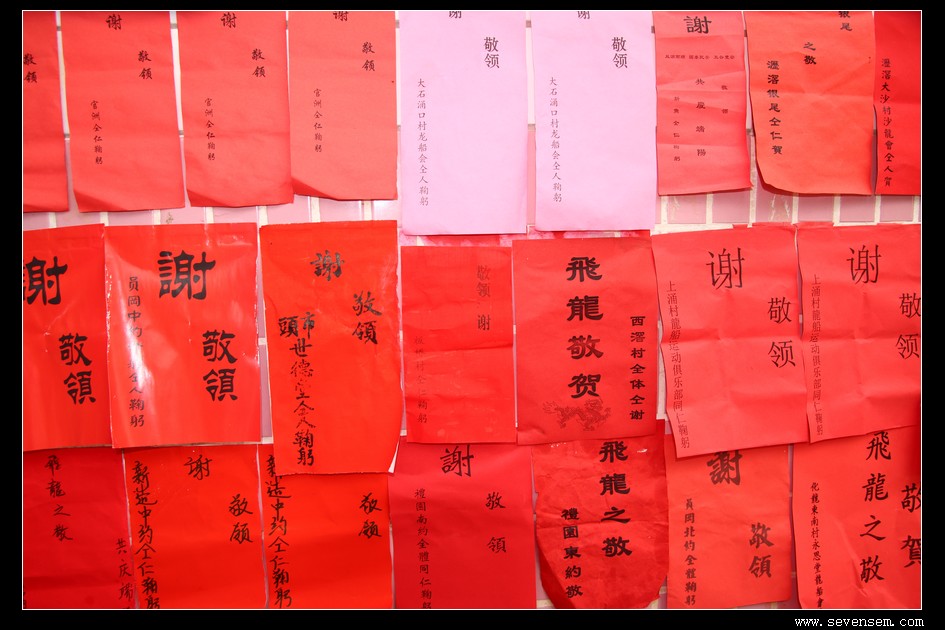 敬领
謝
敬领
官洲仝仁鞠躬
謝
敬领
官洲仝仁鞠躬
謝
敬领
官洲仝仁鞠躬
謝
敬领
大石涌口村龙船会仝人鞠躬
謝
敬领
大石涌口村龙船会仝人鞠躬
謝
共度端陽
之敬
瀝滘銀尾仝仁賀
瀝滘大沙村沙龍會仝人賀
謝
敬領
謝
敬領
員岡中約
仝人鞠躬
謝
敬領
市頭世德堂仝人鞠躬
敬领
谢
飛龍敬贺
西滘村全体仝谢
谢
敬领
上涌村龍船运动俱乐部同仁鞠躬
谢
敬领
上涌村龍船运动俱乐部同仁鞠躬
飛龍之敬
共庆端
謝
敬領
新造中约仝仁鞠躬
敬領
新造中约仝仁鞠躬
謝
敬領
禮園南約全體同仁鞠躬
飛龍之敬
禮園東約敬
謝
敬領
員岡北約全體鞠躬
敬賀
飛龍之敬
化龍東南村永思堂龍船會
www.sevensem.com